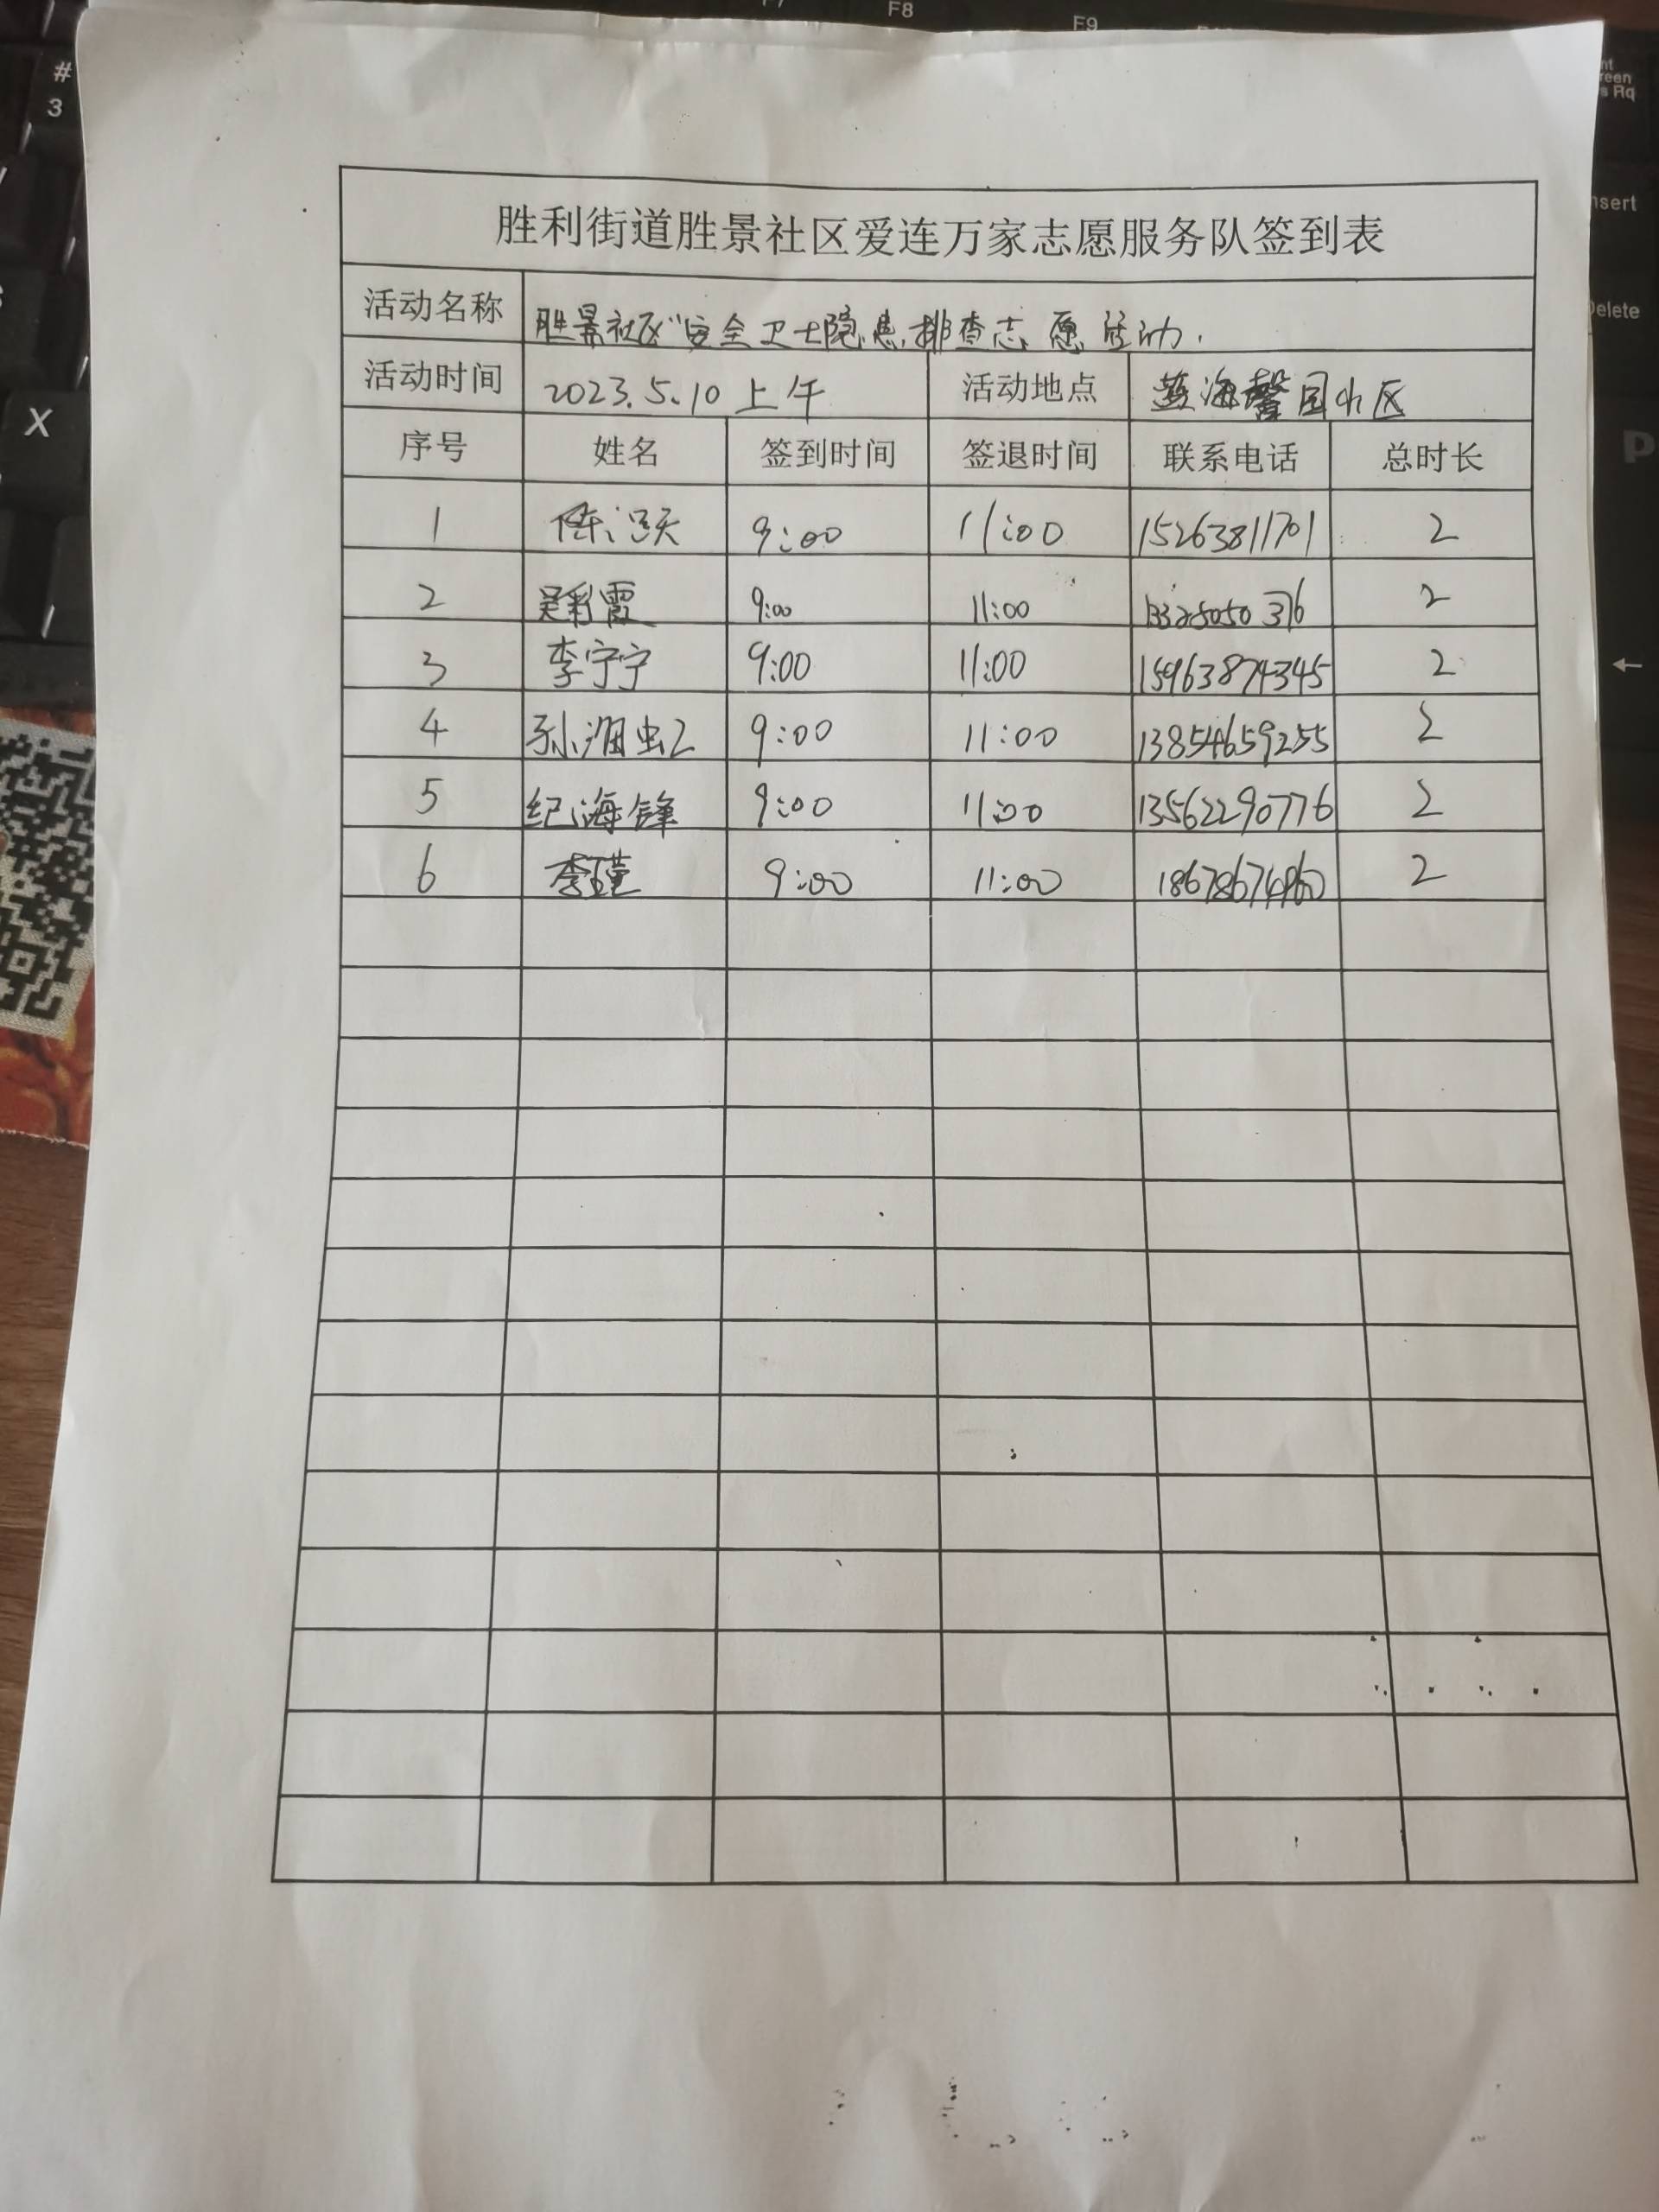 F8
F9
#
3
X
Delete
胜利街道胜景社区爱连万家志愿服务队签到表
活动名称 胜景社区“安全卫士隐患排查志愿活动.
活动时间 2023.5.10 上午 活动地点 蓝海馨园小区
序号 姓名 签到时间 签退时间 联系电话 总时长
1 9:00 11:00 15263811701 2
2 吴彩霞 9:00 11:00 2
3 李宁宁 9:00 11:00 15963874345 2
4 9:00 11:00 13854659255 2
5 纪海锋 9:00 11:00 13562290776 2
6 李瑾 9:00 11:00 2